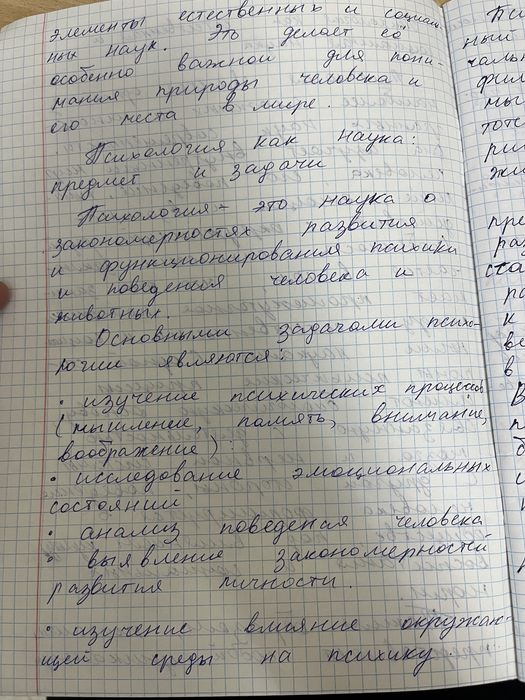 элементы естественных и социаль-
ных наук. Это делает её
особенно важной для пони-
мания природы человека и
его места в мире.
Психология как наука:
предмет и задачи
Психология - это наука о
закономерностях развития
и функционирования психики
и поведения человека и
животных.
Основными задачами психо-
логии являются:
• изучение психических процессов
(мышление, память, внимание,
воображение):
• исследование эмоциональных
состояний
• анализ поведения человека
• выявление закономерностей
развития личности.
• изучение влияние окружаю-
щей среды на психику.